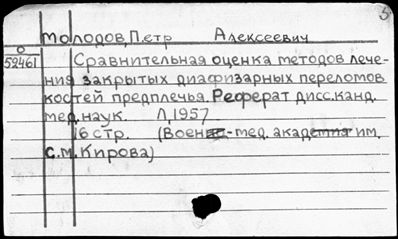 5
Молодов, Петр Алексеевич
0
52461
Сравнительная оценка методов лече-
ния закрытых диафизарных переломов
костей предплечья. Реферат дисс. канд.
мед. наук. Л, 1957
16 стр. (Воен-мед. академия им.
С.М. Кирова)